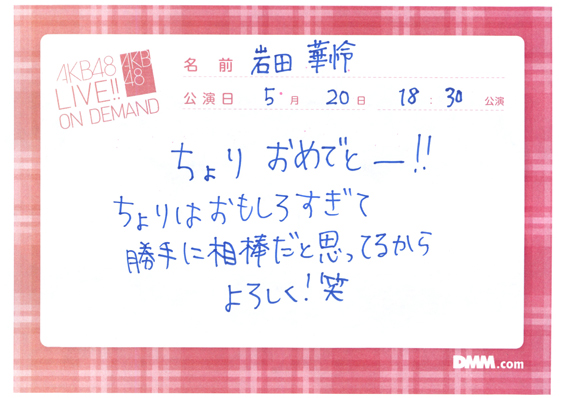 AKB48
LIVE!!
ON DEMAND
AKB
48
名前 岩田 華怜
公演日 5月 20日 18:30 公演
ちょり おめでとー!!
ちょりはおもしろすぎて
勝手に相棒だと思ってるから
よろしく!笑
DMM.com